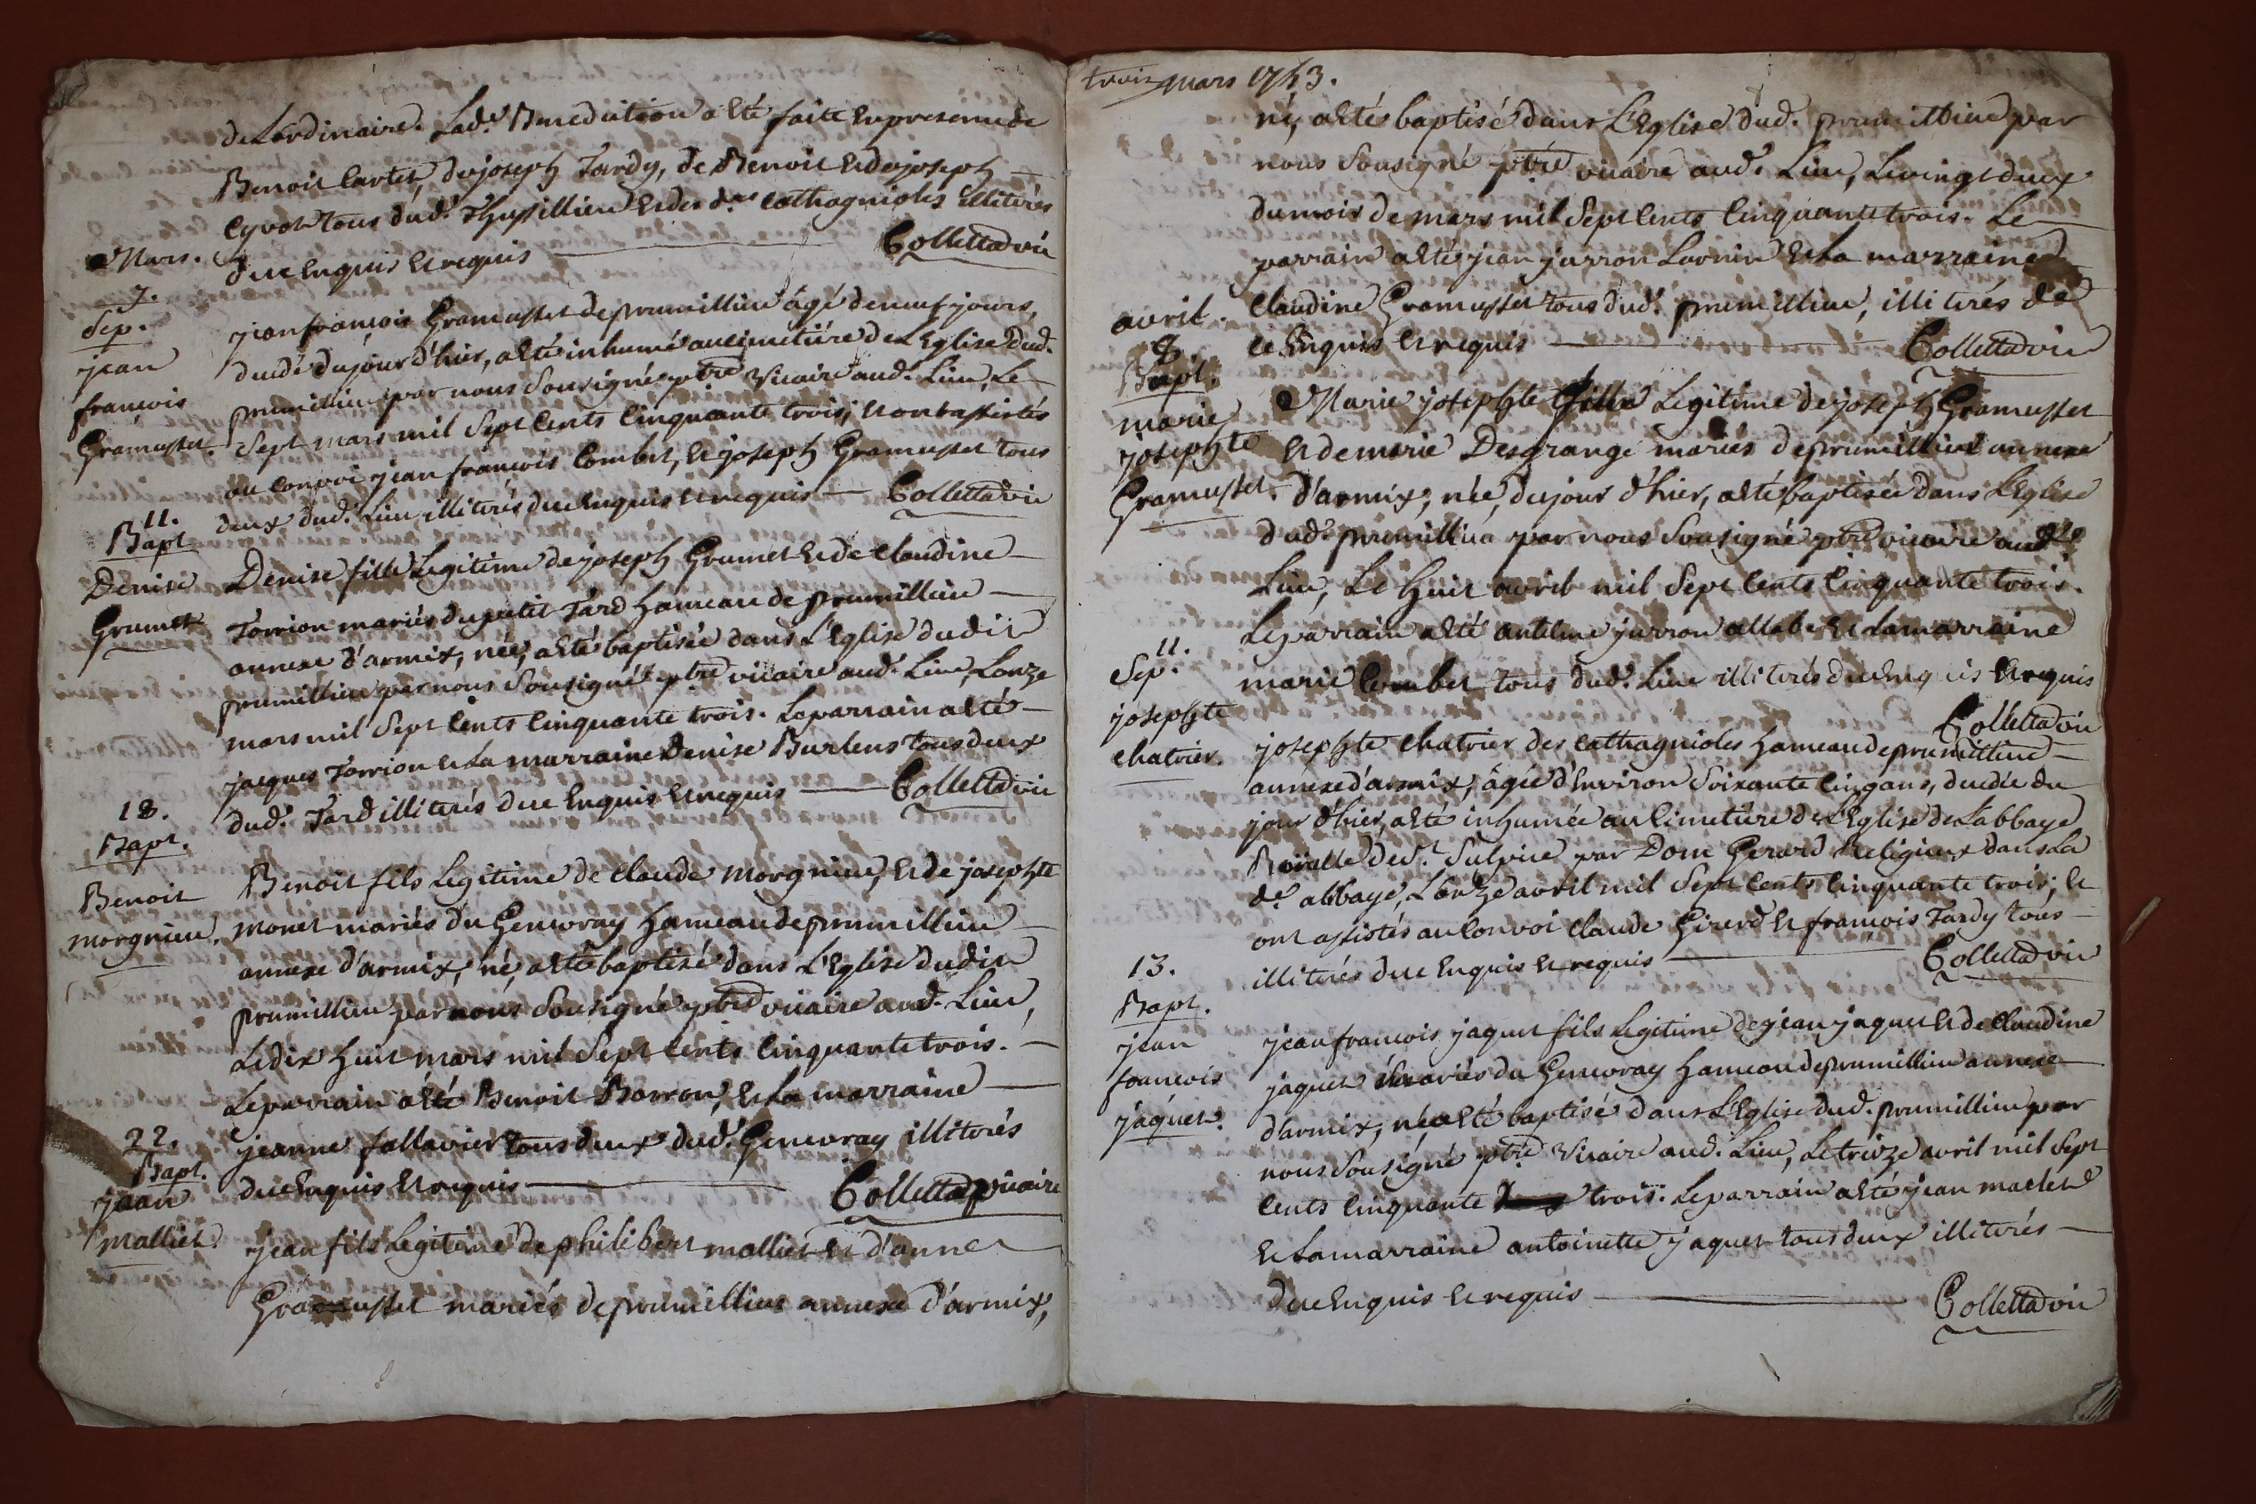 de Lordinaire. Lad.e Benediction a eté faite en presence de
Benoit Cartet, de joseph Tardy, de Benoit et de joseph
Cyvot tous dud. Thussillieu et des d.es Cathagnioles illiterés
Mars. de ce enquis et requis Colletta vic
7.
Sep. jean françois Gramusset de prumillieu âgé de neuf jours,
jean decédé du jour d'hier, a eté inhumé au cimetiére de L'Eglise dud.
françois prumillieu par nous Sousigné ptre Vicaire aud. Lieu, Le
Gramusset. Sept mars mil Sept Cents Cinquante trois; et ont assistés
au Convoi jean françois Combet, et joseph Gramusset tous
11. deux dud. Lieu illiterés de ce enquis et requis Colletta vic
Bapt
Denise Denise fille Legitime de joseph Grumet et de Claudine
Grumet Torrion mariés du petit Tard hameau de prumillieu
annexe d'armix, née, a eté baptisée dans L'Eglise dudit
prumillieu par nous Sousigné ptre vicaire aud. Lieu, Lonze
mars mil Sept Cents Cinquante trois. Le parrain a eté
jacques Torrion et La marraine Denise Burlens tous deux
18. dud. Tard illiterés de ce enquis et requis Colletta vic
Bapt.
Benoit Benoit fils Legitime de Claude Morgnieu, et de josephte
morgnieu. monet mariés du Genevray hameau de prumillieu
annexe d'armix, né, a eté baptisé dans L'Eglise dudit
prumillieu par nous Sousigné ptre vicaire aud. Lieu,
Le dix huit mars mil Sept Cents Cinquante trois.
Le parrain a eté Benoit Borron, et La marraine
22. jeanne fallavier tous deux dud. Genevray illiterés
Bapt. de ce enquis et requis Colletta vicaire
jean
malliet jean fils Legitime de philibert malliet et d'anne
Gramusset mariés de prumillieu annexe d'armix,
trois mars 1753.
né, a eté baptisé dans L'Eglise dud. prumillieu par
nous Sousigné ptre vicaire aud. Lieu, Le vingt deux
du mois de mars mil Sept Cents Cinquante trois. Le
parrain a eté jean jurron Lornin et La marraine
avril. Claudine Gramusset tous dud. prumillieu, illiterés de
8. ce enquis et requis Colletta vic
Bapt.
marie Marie josephte fille Legitime de joseph Gramusset
josephte et de marie Desgrange mariés de prumillieu annexe
Gramusset. d'armix, née, du jour d'hier, a eté baptisée dans L'Eglise
dud. prumillieu par nous Sousigné ptre vicaire aud.
Lieu, Le huit avril mil Sept Cents Cinquante trois.
11. Le parrain a eté antelme jurron et La marraine
Sep. marie Combet tous dud. Lieu illiterés de ce enquis et requis
josephte Colletta vic
Chatrier. josephte Chatrier des Cathagnioles hameau de prumillieu
annexe d'armix, âgée d'environ Soixante Cinq ans, decedée du
jour d'hier, a eté inhumée au Cimetiére de L'Eglise de L'abbaye
Roïalle de S.t Sulpice par Dom Gerard Religieux dans La
d.e abbaye, L'onze avril mil Sept Cents Cinquante trois; et
ont assistés au Convoi Claude Girerd et françois Tardy tous
13. illiterés de ce enquis et requis Colletta vic
Bapt.
jean jean françois jaquet fils Legitime de jean jaquet et de Claudine
françois jaquet mariés du Genevray hameau de prumillieu annexe
jaquet. d'armix, né a eté baptisé dans L'Eglise dud. prumillieu par
nous Sousigné ptre Vicaire aud. Lieu, Le treize avril mil Sept
Cents Cinquante trois. Le parrain a eté jean maclet
et La marraine antoinette jaquet tous deux illiterés
de ce enquis et requis Colletta vic